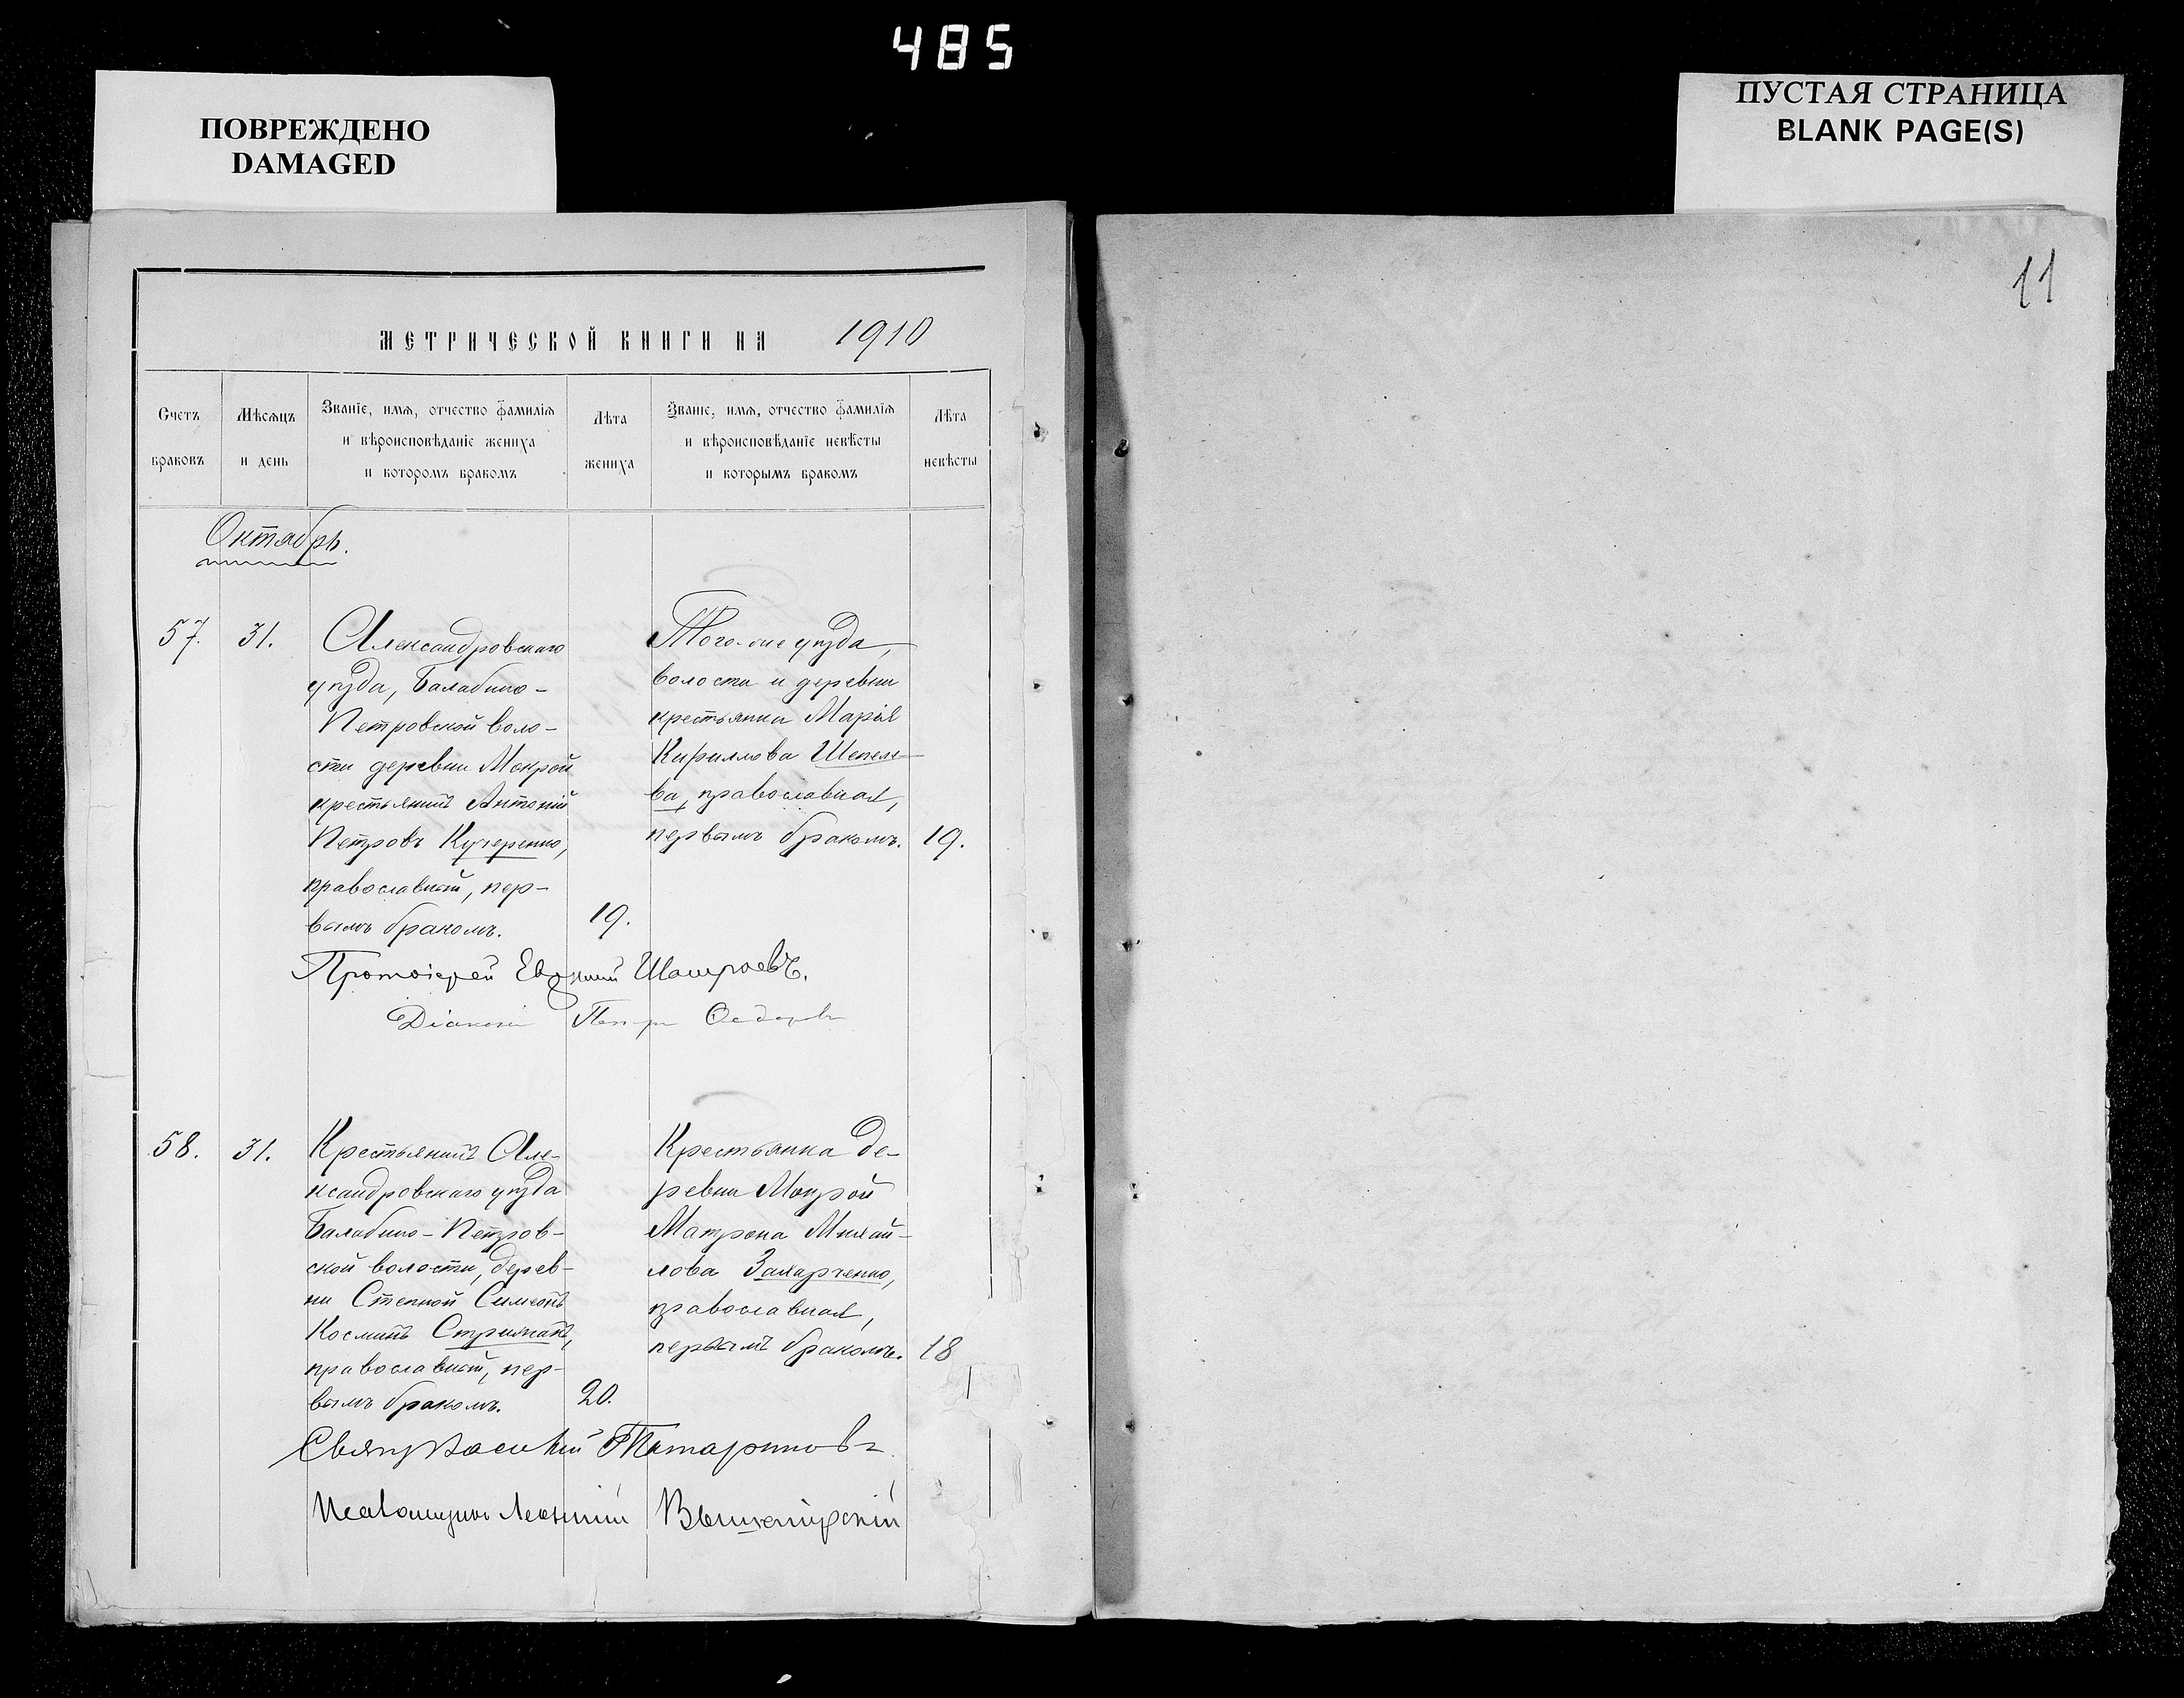 485
ПОВРЕЖДЕНО
DAMAGED
ПУСТАЯ СТРАНИЦА
BLANK PAGE(S)
11
МЕТРИЧЕСКОЙ КНИГИ НА 1910
Счетъ
браковъ
Мѣсяцъ
и день
Званіе, имя, отчество фамилія
и вѣроисповѣданіе жениха
и которомъ бракомъ
Лѣта
жениха
Званіе, имя, отчество фамилія
и вѣроисповѣданіе невѣсты
и которымъ бракомъ
Лѣта
невѣсты
Октябрь.
57.
31.
Александровскаго
уѣзда, Балабино-
Петровской воло-
сти деревни Мокрой
крестьянинъ Антоній
Петровъ Кучеренко,
православный, пер-
вымъ бракомъ.
19.
Того-же уѣзда,
волости и деревни
крестьянка Марія
Кириллова Шепеле-
ва, православная,
первымъ бракомъ.
19.
Протоіерей Евѳимій
Діаконъ Петръ Ѳедоровъ
58.
31.
Крестьянинъ Але-
ксандровскаго уѣзда
Балабино-Петров-
ской волости, дерев-
ни Степной Симеонъ
Косминъ Стрижакъ,
православный, пер-
вымъ бракомъ.
20.
Крестьянка де-
ревни Мокрой
Матрона Михай-
лова Захарченко,
православная,
первымъ бракомъ.
18
Свящ Василій Татариновъ
Псаломщикъ